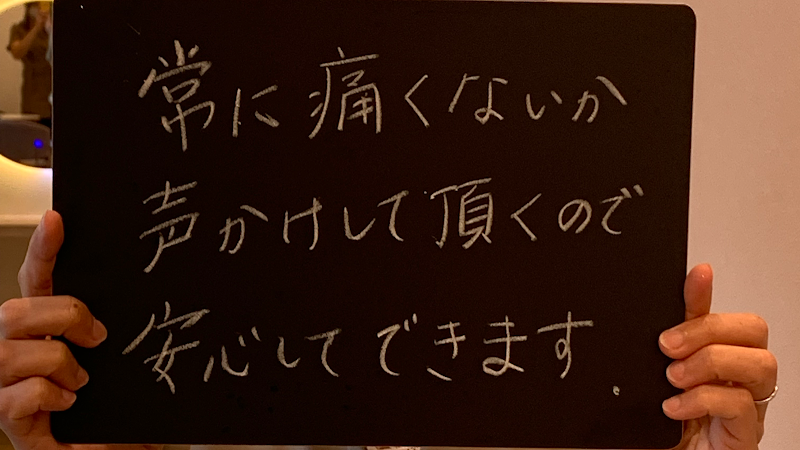 常に痛くないか
声かけして頂くので
安心してできます.